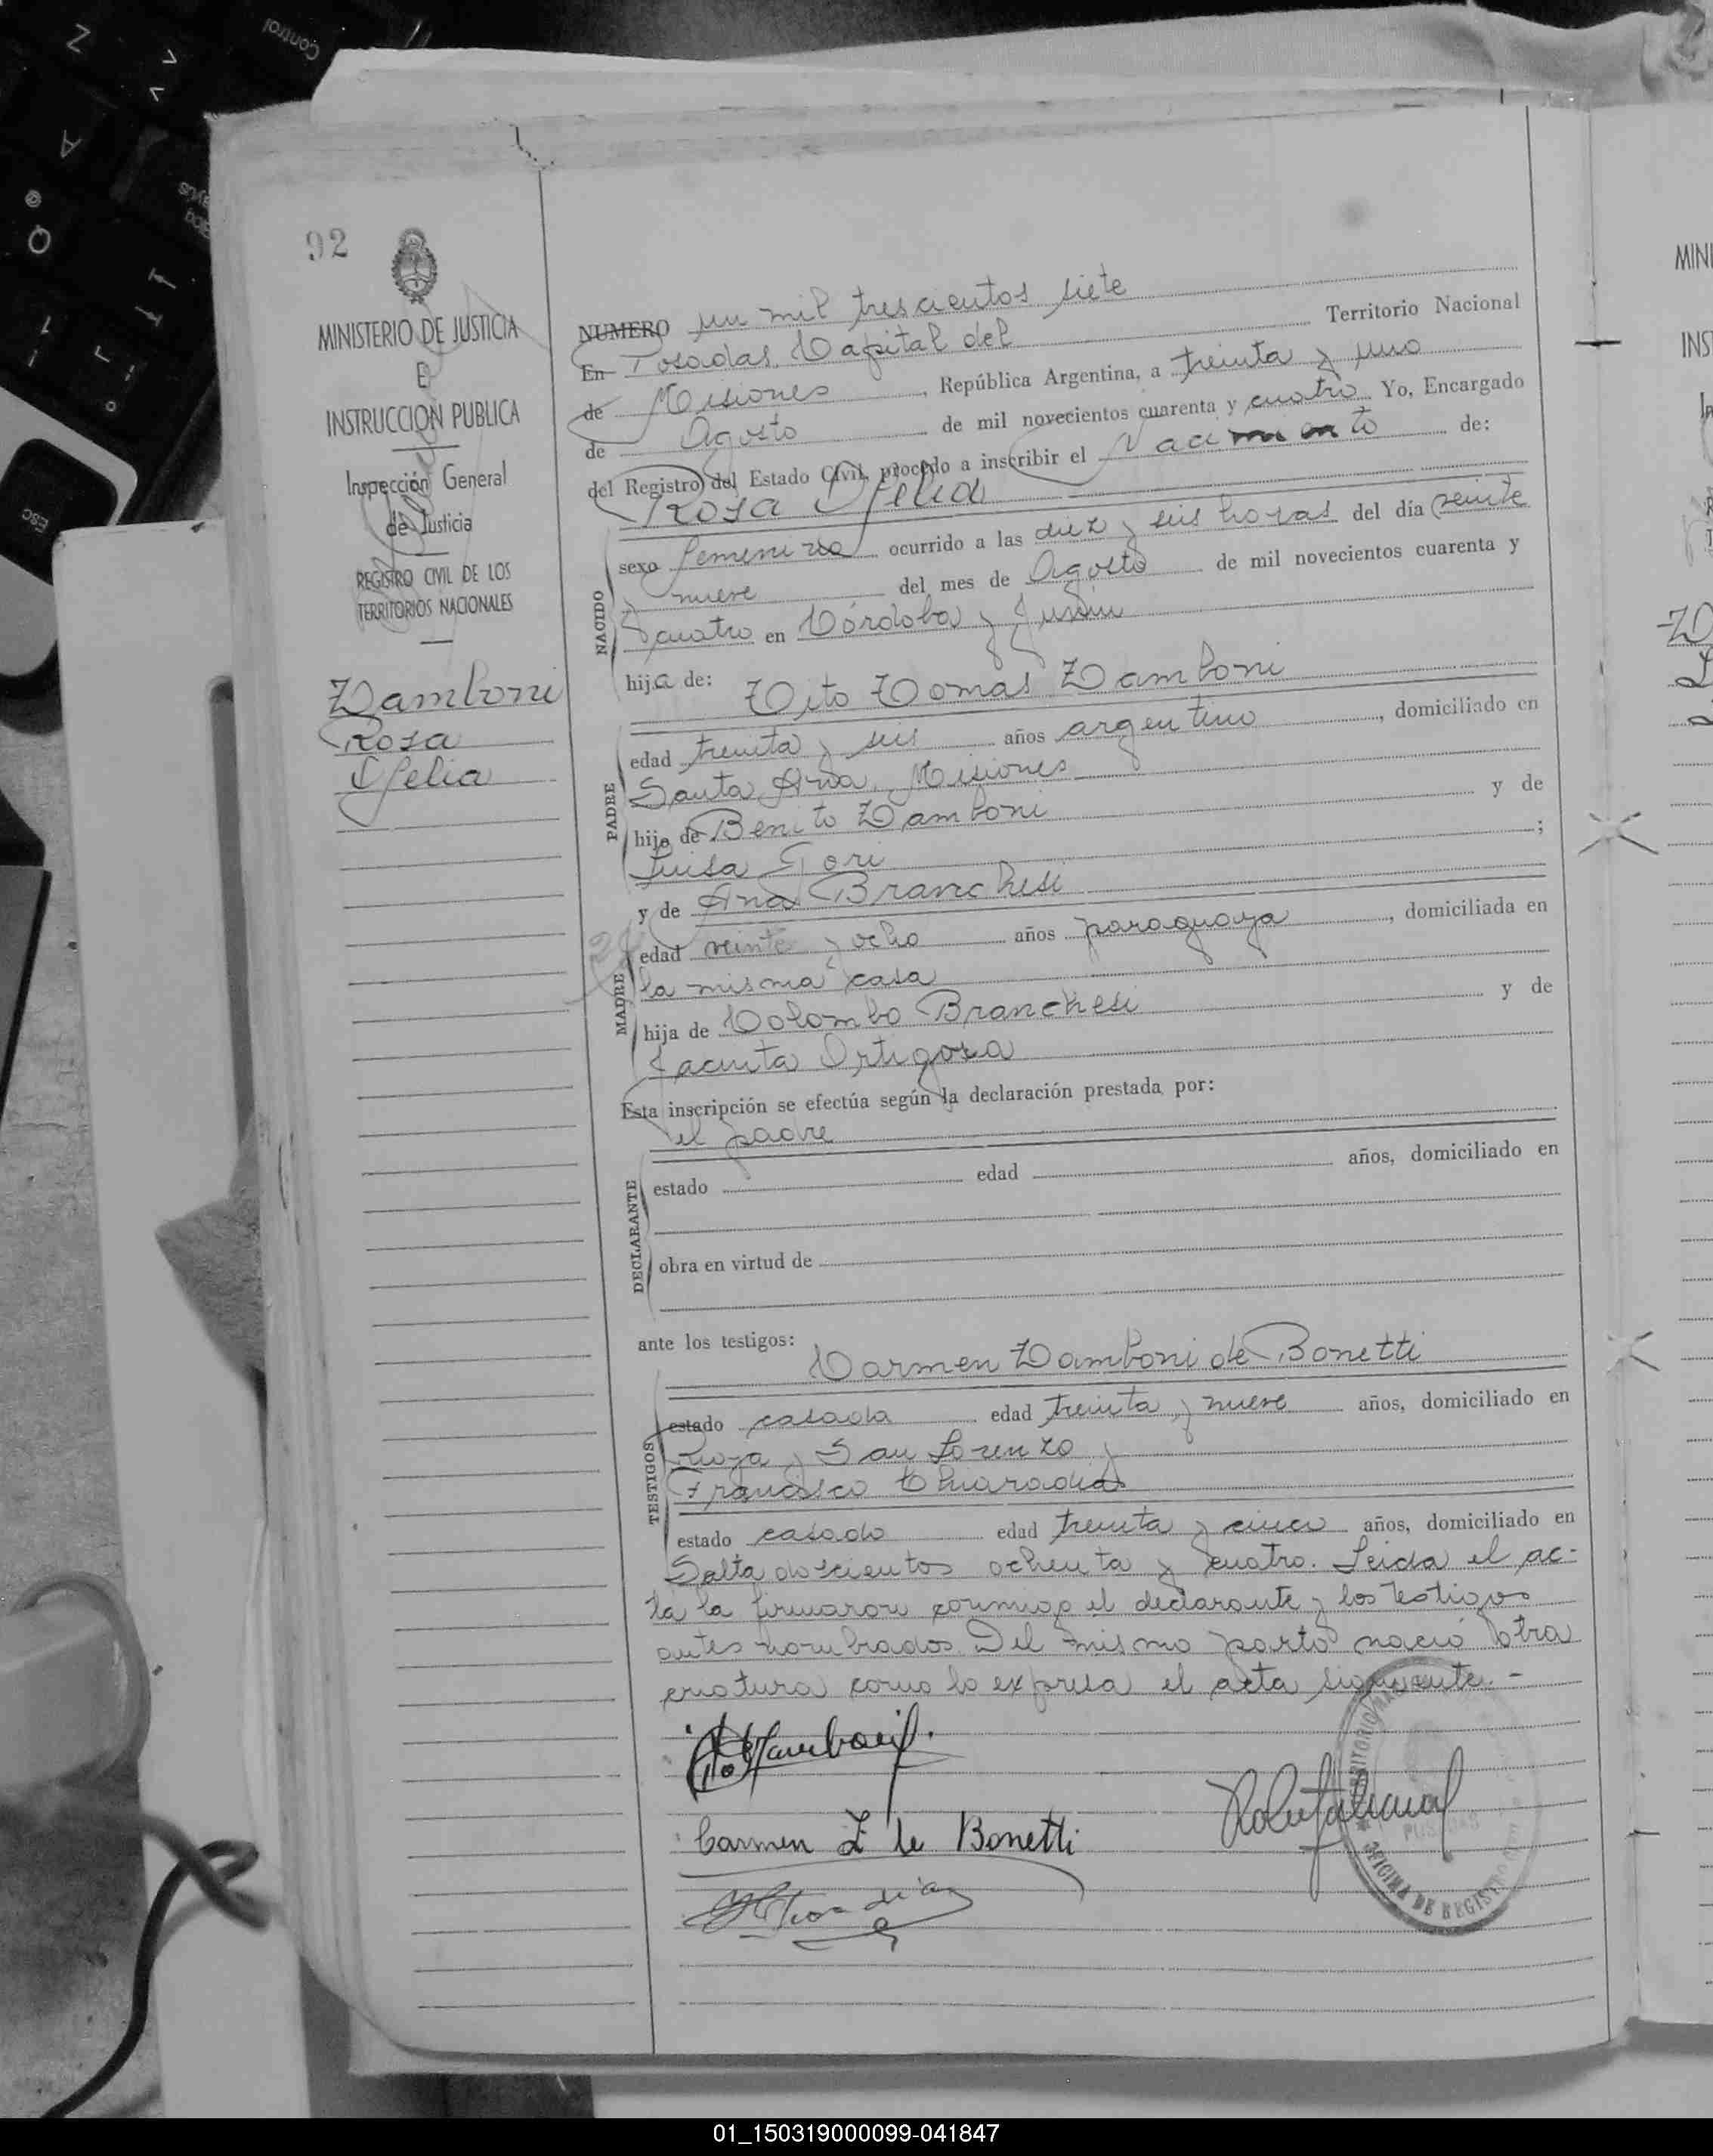 Control
Z
A
Q
Esc
92
MINISTERIO DE JUSTICIA
E
INSTRUCCION PUBLICA
Inspección General
de Justicia
REGISTRO CIVIL DE LOS
TERRITORIOS NACIONALES
Zamboni
Rosa
Ofelia
NUMERO un mil trescientos siete
En Posadas, Capital del Territorio Nacional
de Misiones, República Argentina, a treinta y uno
de Agosto de mil novecientos cuarenta y cuatro Yo, Encargado
del Registro del Estado Civil, procedo a inscribir el Nacimiento de:
Rosa Ofelia
NACIDO
sexo femenino ocurrido a las diez y seis horas del día veinte
y nueve del mes de Agosto de mil novecientos cuarenta y
cuatro en Córdoba y Junin
hija de: Tito Tomas Zamboni
PADRE
edad treinta y seis años argentino, domiciliado en
Santa Ana, Misiones
hijo de Benito Zamboni y de
Luisa Gori;
y de Ana Branchesi
MADRE
edad veinte y ocho años paraguaya, domiciliada en
la misma casa
hija de Colombo Branchesi y de
Jacinta Ortigoza
Esta inscripción se efectúa según la declaración prestada por:
el padre
DECLARANTE
estado edad años, domiciliado en
obra en virtud de
ante los testigos:
Carmen Zamboni de Bonetti
TESTIGOS
estado casada edad treinta y nueve años, domiciliado en
Rioja y San Lorenzo y
Francisco
estado casado edad treinta y cinco años, domiciliado en
Salta doscientos ochenta y cuatro. Leida el ac-
ta la firmaron conmigo el declarante y los testigos
antes nombrados. Del mismo parto nació otra
criatura como lo expresa el acta siguiente. -
Carmen Z de Bonetti
TERRITORIO
POSADAS
OFICINA DE REGISTRO
MINI
INS
01_150319000099-041847